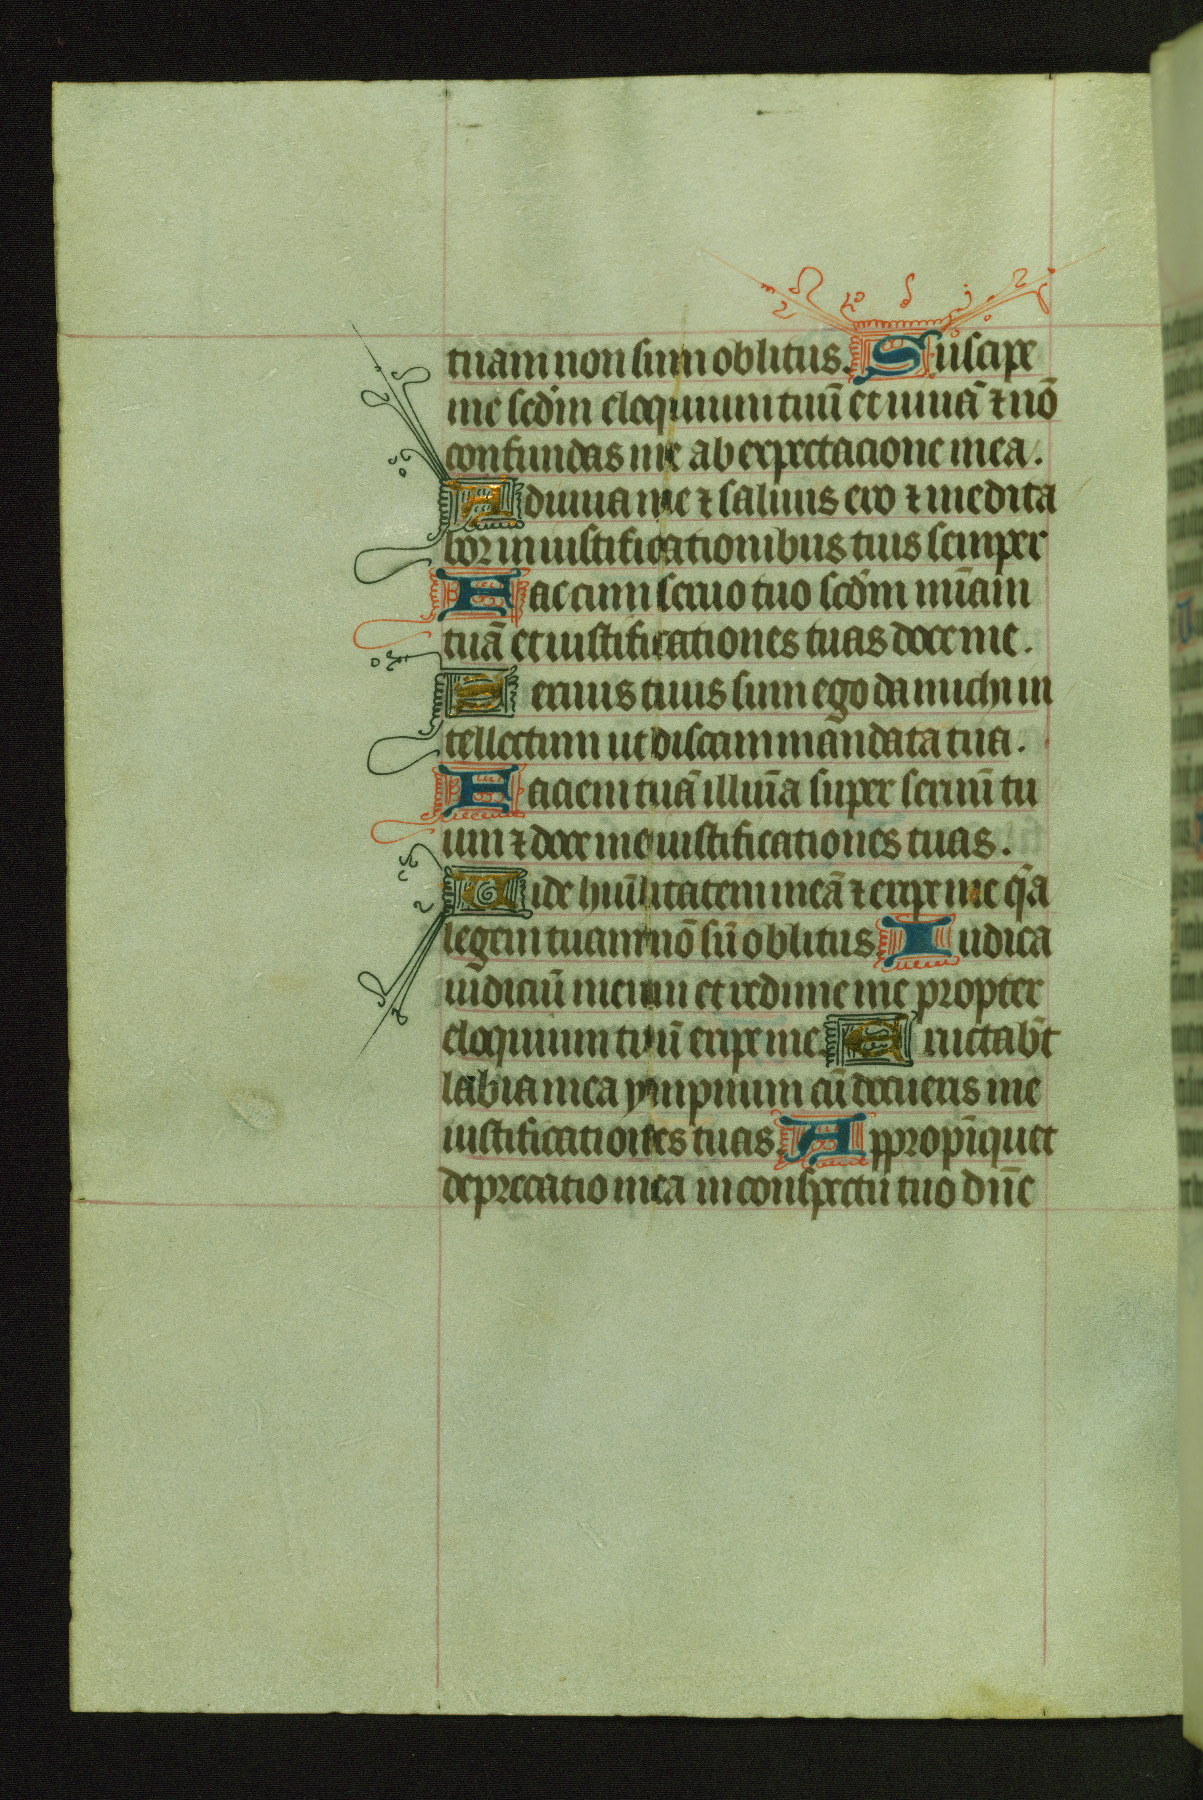 tuam non sum oblitus. Suscipe
me scd̄m eloquium tuū et uiuā ⁊ nō
confundas me ab expectacione mea.
Adiuua me ⁊ saluus ero ⁊ medita
bor in iustificationibus tuis semper
Fac cum seruo tuo scd̄m mīam
tuā et iustificationes tuas doce me.
Seruus tuus sum ego da michi in
tellectum ut discam mandata tua.
Faciem tuā illuīa super seruū tu
um ⁊ doce me iustificationes tuas.
Uide huīlitatem meā ⁊ eripe me q̄a
legem tuam nō sū oblitus Iudica
iudiciū meum et redime me propter
eloquium tuū eripe me Eructabn̄t
labia mea ympnum cū docueris me
iustificationes tuas Appropīquet
deprecatio mea in conspectu tuo dn̄e